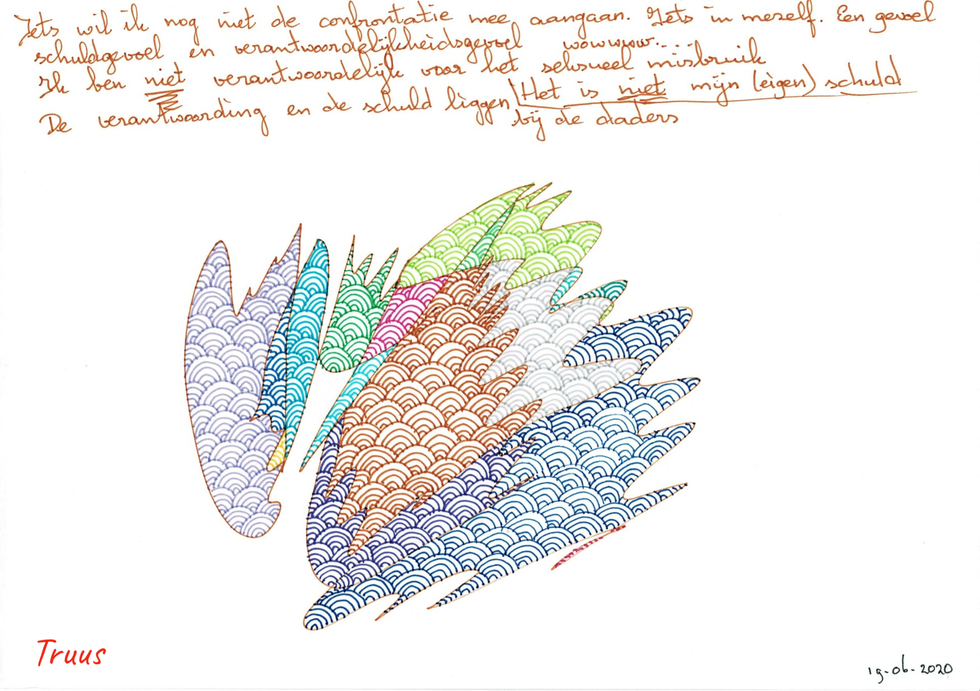 Iets wil ik nog niet de confrontatie mee aangaan. Iets in mezelf. Een gevoel
schuldgevoel en verantwoordelijkheidsgevoel wowwww....
Ik ben niet verantwoordelijk voor het seksueel misbruik
De verantwoording en de schuld liggen (Het is niet mijn (eigen) schuld
bij de daders
Truus
19-06-2020